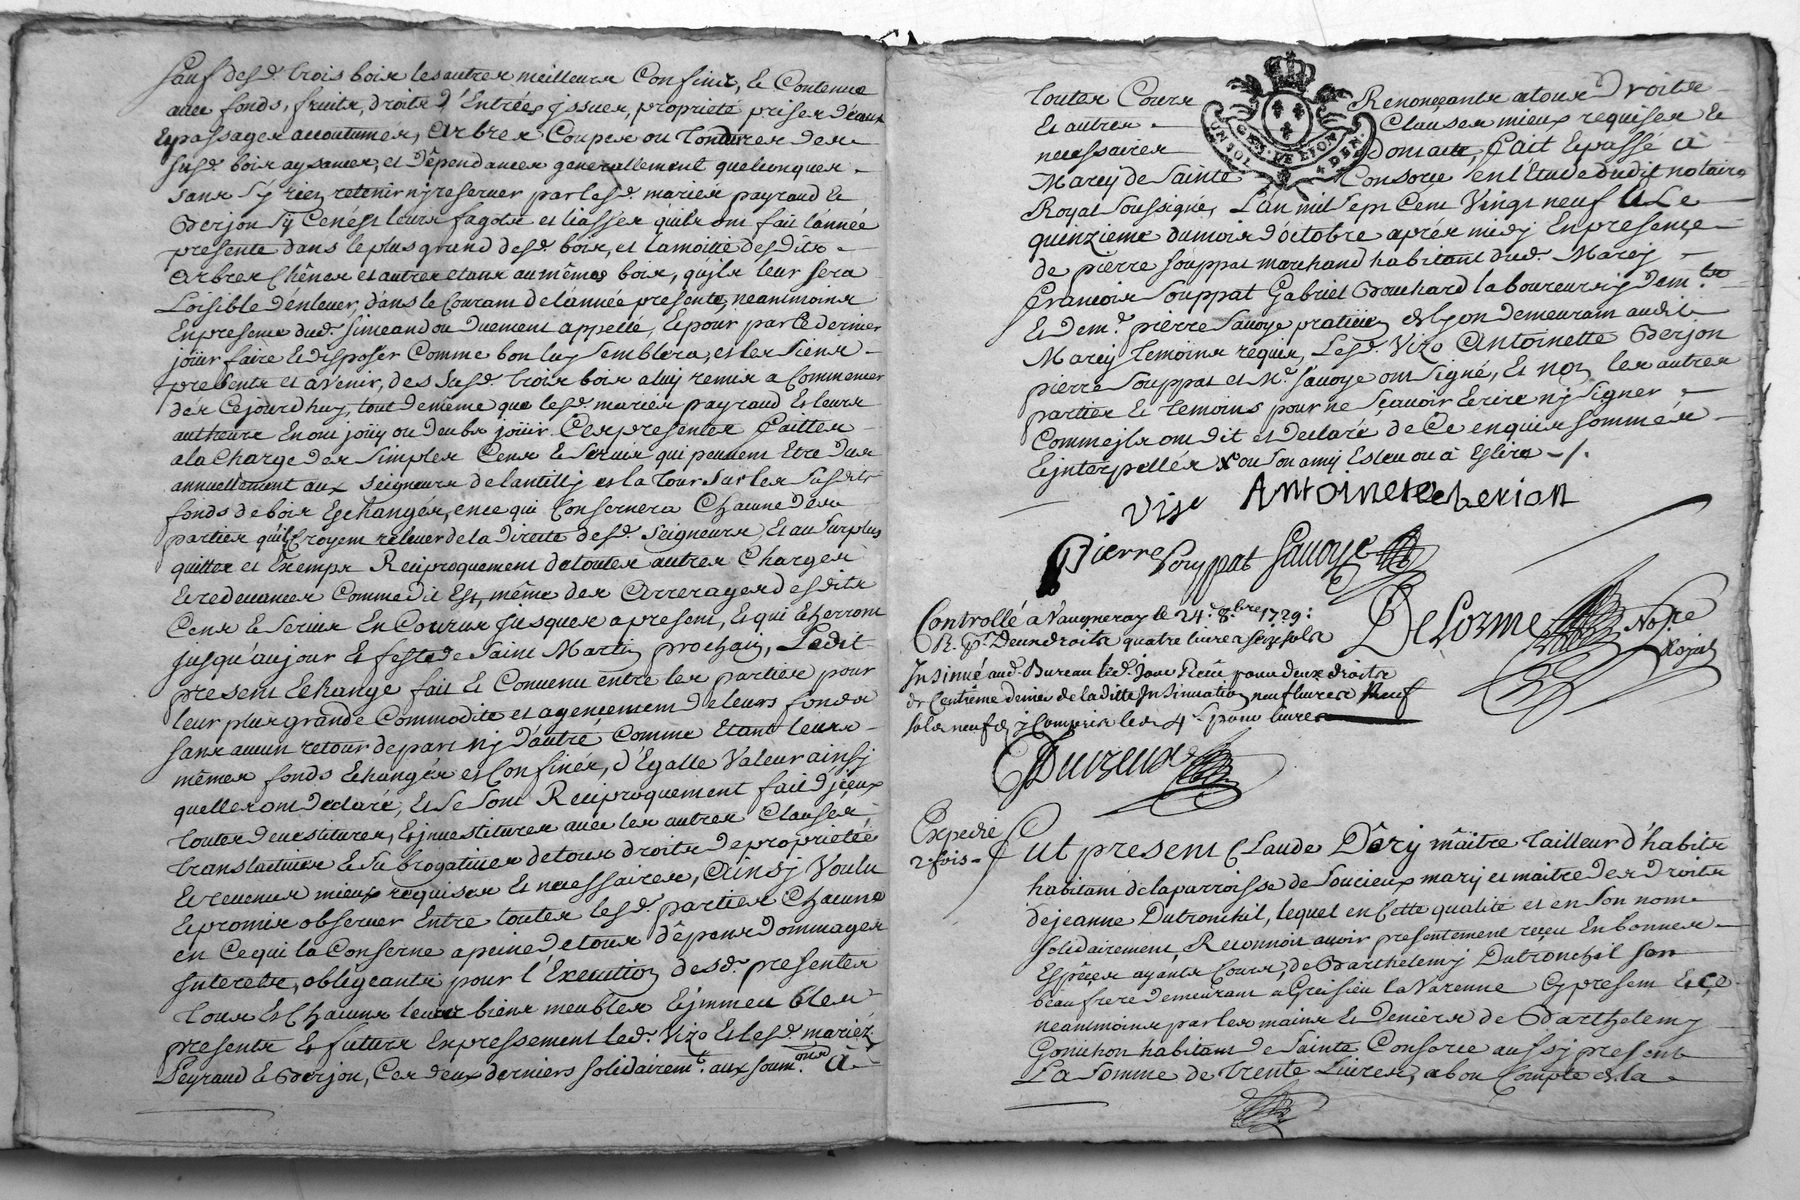 sauf desd. trois bois les autres meilleurs Confins, le Contenue
avec fonds, fruits, droits d'Entrées jssues, proprieté prises d'eaux
Et passages accoutumes, Arbres Coupes ou tondures des
susd. bois aysances, et dêpendances generallement quelconques
sans sy rien retenir ny reserver par lesd. mariés payraud Et
Berjon sy Ce n'est leurs fagots et liasses quils ont fait l'année
presente dans le plus grand desd. bois, et la moitié desdits
Arbres Chênes et autres etans au mêmes bois, qu'jls leur sera
Loisible d'enlever, dans le Courant de l'année presente, neantmoins
En presence dud. simeand ou Duement appellé, Et pour par Ce dernier
joüir faire Et disposer Comme bon luy semblera, et les siens
presents et avenir, des susd. trois bois a luy remis a Commencer
dés Cejourdhuy, tout de même que lesd. mariés payraud Et leurs
autheurs En ont joüy ou deubs joüir. Ces presentes faittes
a la Charge des simples Cens Et servis qui peuvent Etre dus
annuellement aux seigneurs de lantilly et la tour sur les susdits
fonds de bois Echangés, en ce qui Consernera Chacune des
parties qu'ils Croyent relever de la Directe desd. seigneurs, Et au surplus
quittes et Exempts Reciproquement de toutes autres Charges
Et redevances Comme dit Est, même des Arrerages desdits
Cens Et servis En Courus jusques a present, Et qui Echerront
jusqu'au jour Et feste de saint Martin prochain, Ledit
present Echange fait Et Convenu entre les parties pour
leur plus grande Commodité et agencement de leurs fonds
sans aucun retour de part nj d'autre Comme Etant leurs
mêmes fonds Echangés et Confinés, d'Egalle Valeur ainsj
quelles ont declaré, Et se sont Reciproquement fait d'jceux
toutes devestitures, Et jnvestitures avec les autres Clauses
translatives Et subrogatives de tous droits de proprietée
Et revenus mieux requises Et necessaires, Ainsj Voulu
Et promis observer Entre toutes lesd. parties Chacune
en Ce qui la Conserne a peine de tous dêpens dommages
Interets, obligeants pour l'Execution desd. presentes
tous Et Chacuns leurs biens meubles Et jmmeubles
presents Et futurs Expressement led. Vizo Et lesd. mariéz
Peyraud Et Berjon, Ces deux derniers solidairemt. aux soum.ons A
toutes Cours Renonçants a tous Droits
Et autres Clauses mieux requises Et
necessaires Domaice, fait Et passé à
Marcy de Sainte Consorce en l'Etude dudit notaire
Royal soussigné, L'an mil sept Cent Vingt neuf Et Le
quinzieme du mois d'octobre aprés midy En presence
de pierre souppat marchand habitant dud. Marcy
François souppat Gabriel Bouchard laboureurs y dem.ts
Et dem.e pierre savoye praticien de Lyon demeurant audit
Marcy temoins requis, Lesd. Vizo Antoinette Berjon
pierre souppat et Me. savoye ont signé, Et non les autres
parties Et temoins pour ne sçavoir Ecrire ny signer
Comme jls ont dit et declaré de Ce enquis sommés
Et jnterpellés
Visr Antoinette berion
Pierre Souppat Savoye
Controllé à Vaugneray le 24. 8bre 1729:
R. pr. Deux droits quatre livres seize sols
Insinué aud. Bureau led. Jour Reçu pour deux droits
de Centiême denier de laditte Insinuation neuf livres Neuf
sols neuf d. y Compris les 4 s. pour livre
DeLorme Nore
Royal
Duizeux
Expedié
2 fois
Fut present Claude Dêry mâitre tailleur d'habits
habitant de la parroisse de Soucieux mary et maitre des Droits
de jeanne Dutronchil, lequel en Cette qualité et en Son nom
solidairement, Reconnoit avoir presentement reçeu En bonnes
Espêces ayants Cours, de Barthelemy Dutronchil son
beaufrere demeurant a Greisieu la Varenne Cy present Et Ce
neantmoins par les mains Et deniers de Barthelemy
Gonichon habitant de Sainte Consorce aussy present
La Somme de trente Livres, a bon Compte de la
UN SOL GEN. DE LYON DEN.